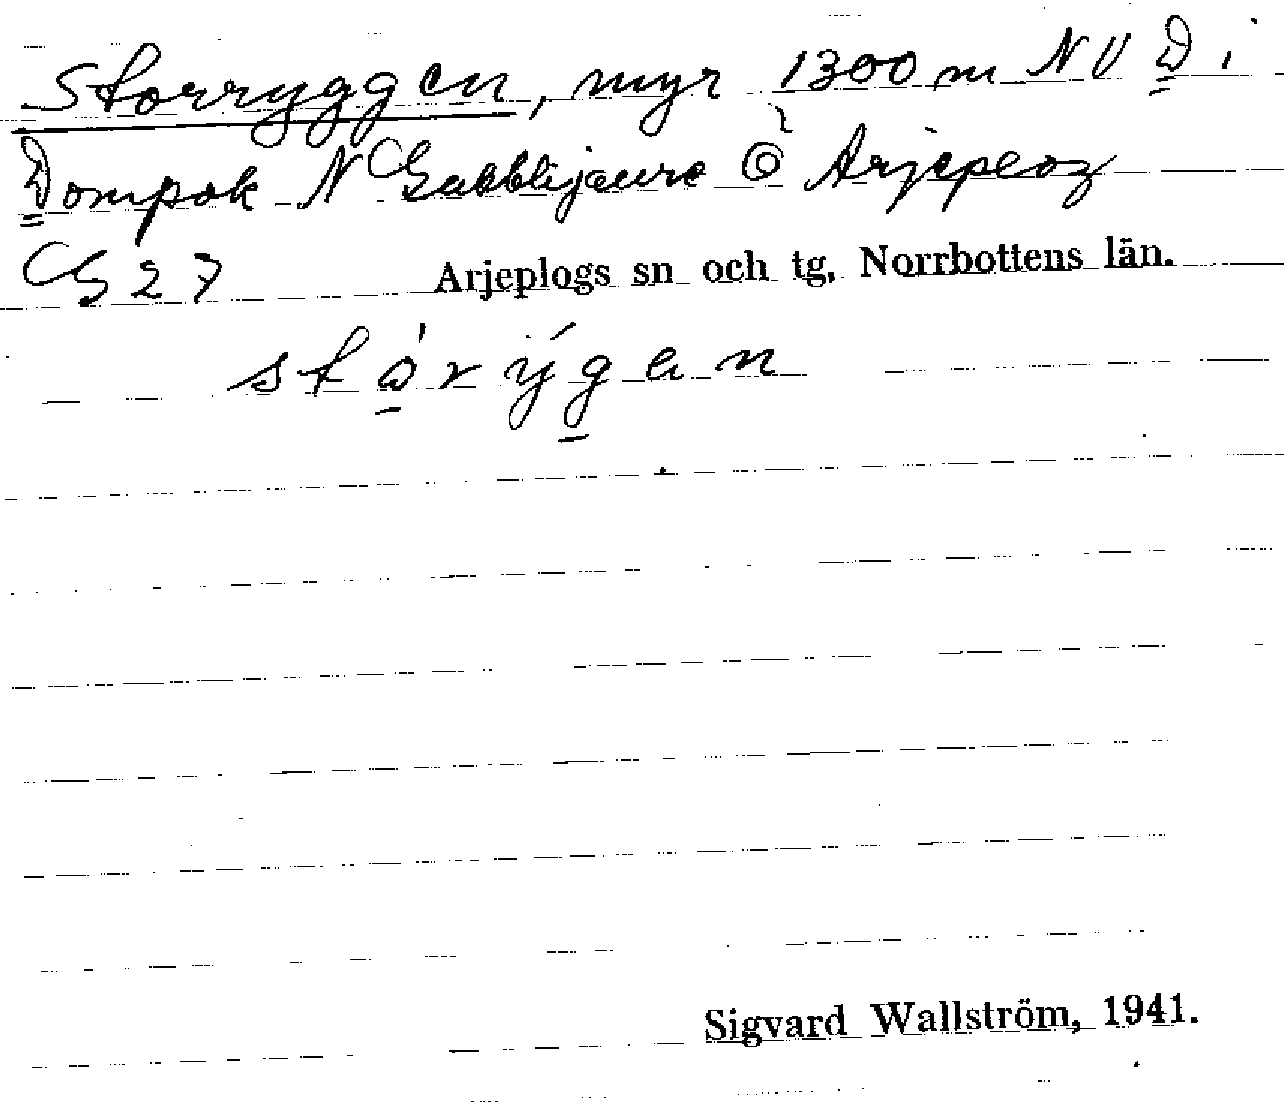 Storryggen, myr 1300 m NV D i
Dompok N Gubblijaure Ö Arjeplog
G 27 Arjeplogs sn och tg, Norrbottens län.
stórýgen
Sigvard Wallström, 1941.